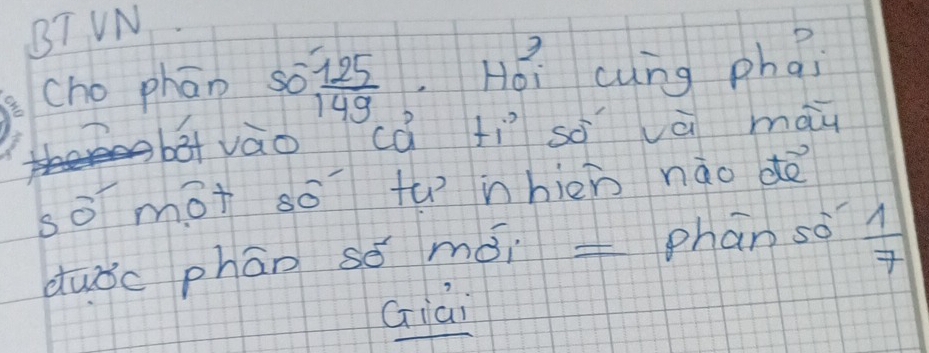 BTVN.
Cho phân số 125/149. Hỏi cùng phải
bớt vào cả tỉ số và mẫu
số một số tự nhiên nào để
được phân số mới = phân số 1/7
Giải